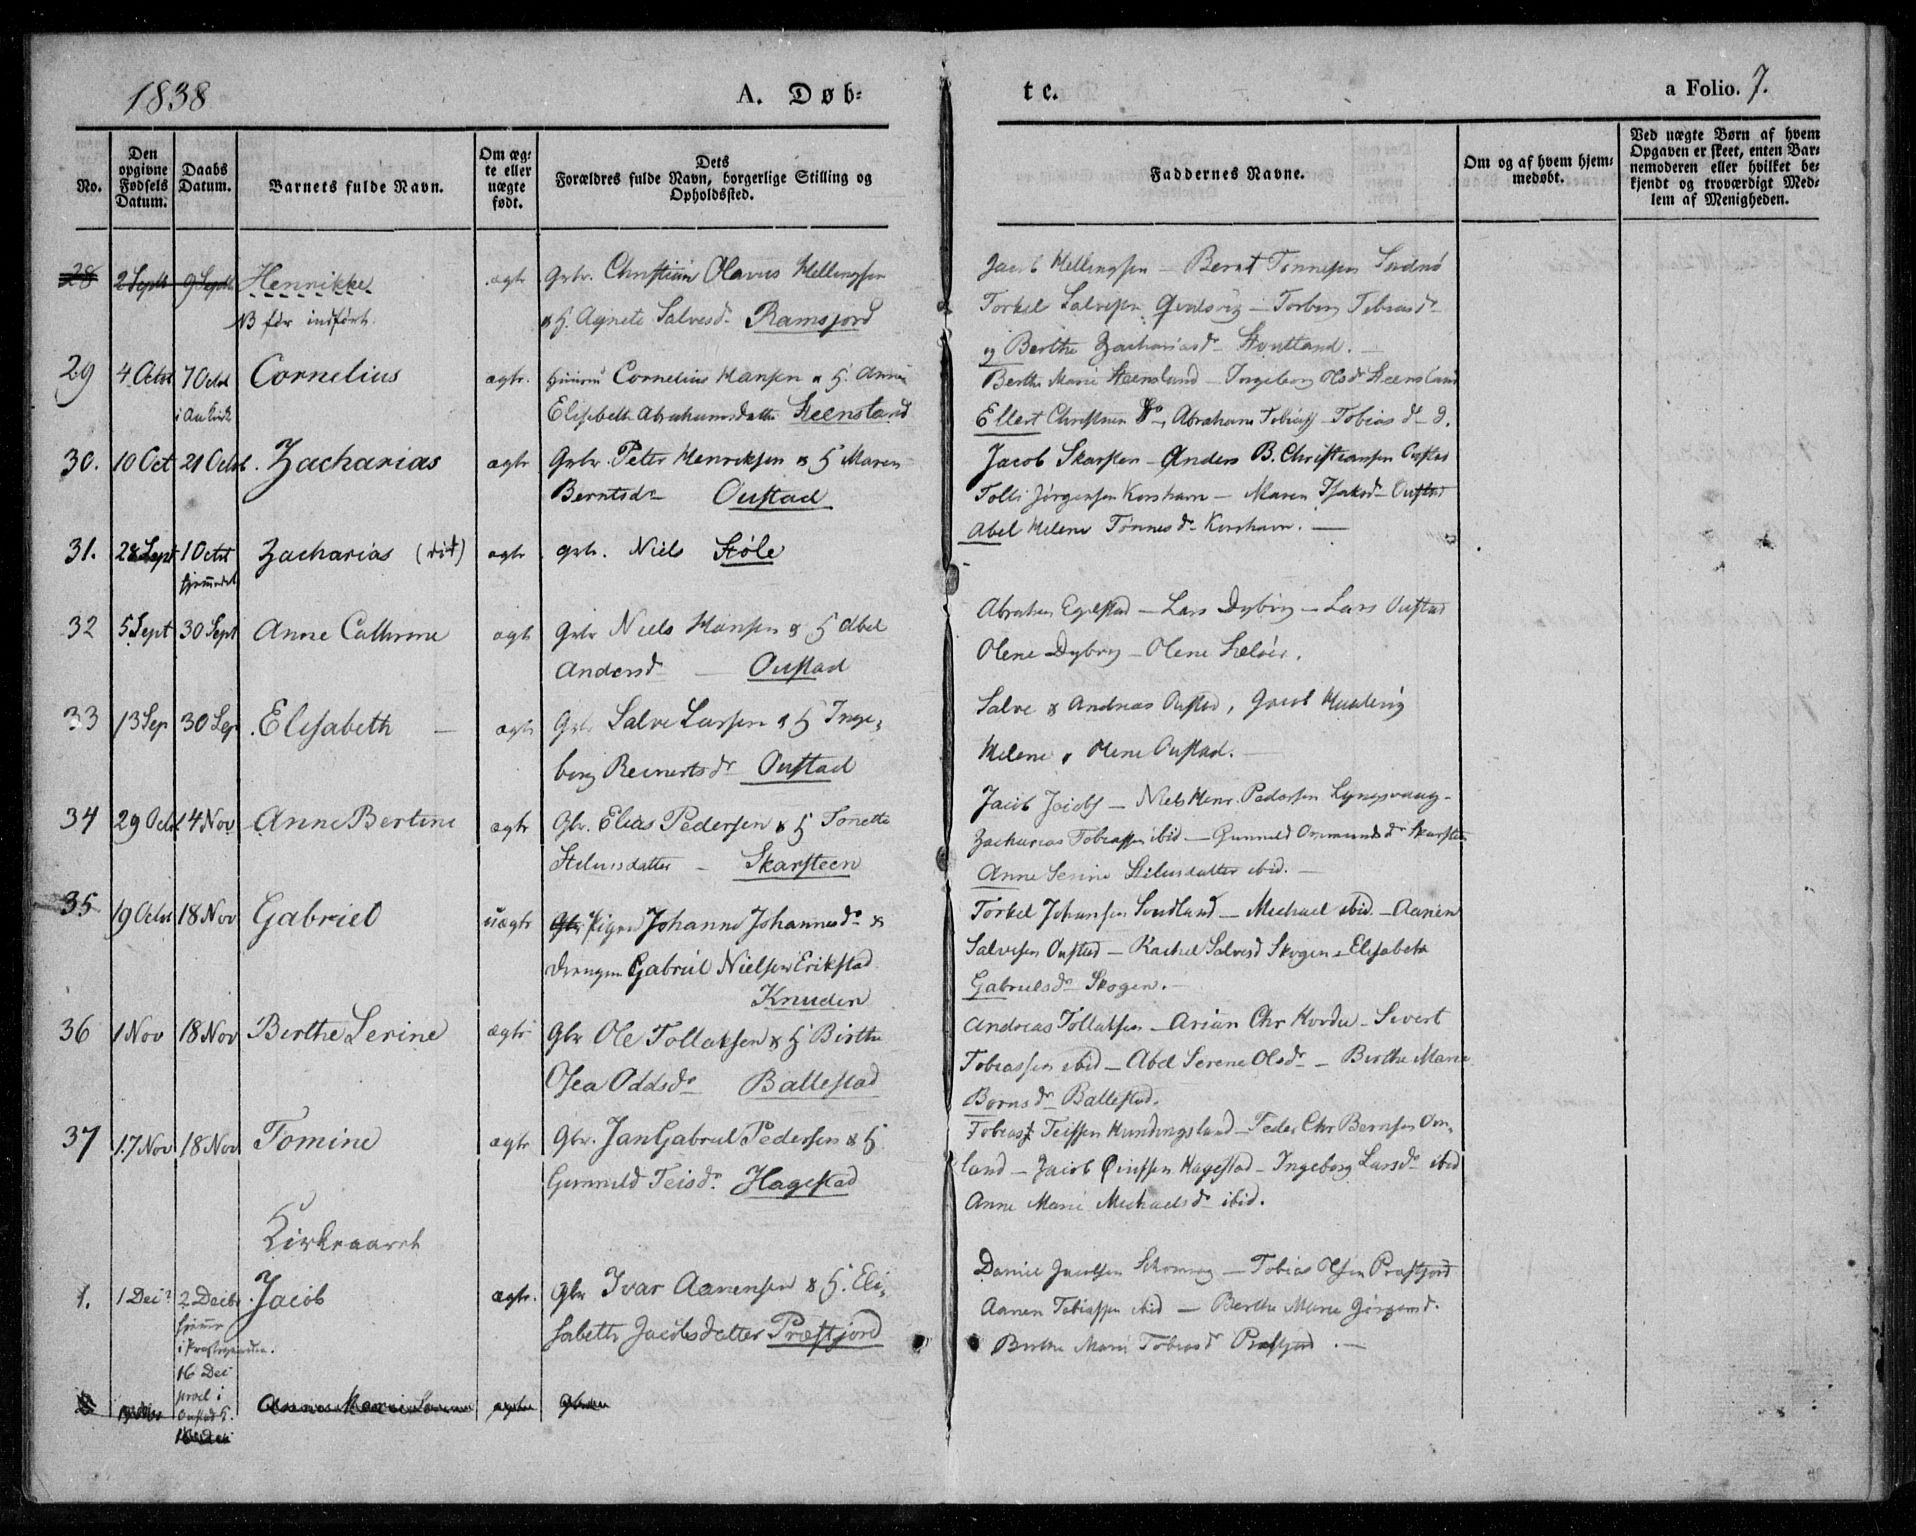 1838
A. Døb=
te.
a Folio. 7.
No.
Den opgivne Fødsels Datum.
Daabs Datum.
Barnets fulde Navn.
Om æg= te eller uægte født.
Dets Forældres fulde Navn, borgerlige Stilling og Opholdssted.
Faddernes Navne.
Om og af hvem hjem= medøbt.
Ved uægte Børn af hvem Opgaven er skeet, enten Bar= nemoderen eller hvilket be= kjendt og troværdigt Med= lem af Menigheden.
28 2 Sept 9 Sept Henrikke ægte Gbr. Christian Olavus Mellingsen
NB før indført. & H. Agnete Salvesdr Ramsjord
Jacob Mellingsen — Bernt Tønnesen
Torkel Salvesen — Torborg Tobiasdr
og Berthe Zachariasdr
29 4 Octr 7 Octr Cornelius ægte. Cornelius Hansen & H. Anne
Elisabeth Abrahamsdatter Steensland
Berthe Marie Steensland — Ingeborg Olsdr Steensland
Ellert Christensen Do, Abraham Tobias — Tobias do
30. 10 Oct 21 Octr Zacharias ægte Gbr. Peter Henriksen & H Maren
Berntsdr Oustad
Jacob Skarsten — Anders B. Christiansen Oustad
Tolli Jørgensen Korshavn — Maren Isaksdr Oustad
Abel Helene Tønnesdr Korshavn. —
31. 28 Sept 1 Octr Zacharias ægte gbr. Niels Støle
hjemmedøbt
32 5 Sept 30 Sept Anne Cathrine ægte Gbr Niels Hansen & H Abel
Andersdr — Oustad
Abraham Egelstad — Lars Dybing — Lars Oustad
Olene Dybing — Olene
33 13 Sep 30 Sep Elisabeth — ægte Gbr Salve Larsen & H Inge=
borg Reinertsdr Oustad
Salve & Andreas Oustad, Jacob
Helene & Olene Oustad. —
34 29 Octr 4 Nov Anne Bertine ægte Gbr. Elias Pedersen & H Tonette
Skarsteen
Jacob Jacobs — Niels Henr. Pedersen Lyngsvaag —
Zacharias Tobiassen ibid — Gunnild Ommundsdr Skarsten
Anne Serine ibid. —
35 19 Octr 18 Nov Gabriel uægte Pigen Johanne Johannesdr &
drengen Gabriel Nielsen Erikstad
Knuden
Torkel Johansen Sundland — Michael ibid — Aanen
Salvesen Oustad — Rachel Salvesd Skogen — Elisabeth
Gabrielsdr Skogen. —
36 1 Nov 18 Nov Berthe Serine ægte Gbr Ole Tollaksen & H Birthe
Osea Oddsdr Ballestad
Andreas Tollaksen — Arian Chr — Sivert
Tobiassen ibid — Abel Serene Olsdr — Birthe Marie
Bornsdr Ballestad.
37 17 Nov 18 Nov Tomine ægte Gbr. Jan Gabriel Pedersen & H
Gunnild Teisdr. Hagestad
Tobias Teissen Hundingsland — Peder Chr Bernsen Om=
land — Jacob Hagestad — Ingeborg Larsdr ibid
Anne Marie Michaelsdr ibid.
Kirkeaaret
1. 1 Decr 2 Decbr Jacob ægte. Gbr Ivar Aanensen & H. Eli=
sabeth Jacobsdatter Præstjord
16 Dec
Daniel Jacobsen — Tobias Olsen Præstjord
Aanen Tobiassen ibid — Berthe Marie Jørgensd.
Birthe Marie Tobiasdr Præstjord. —